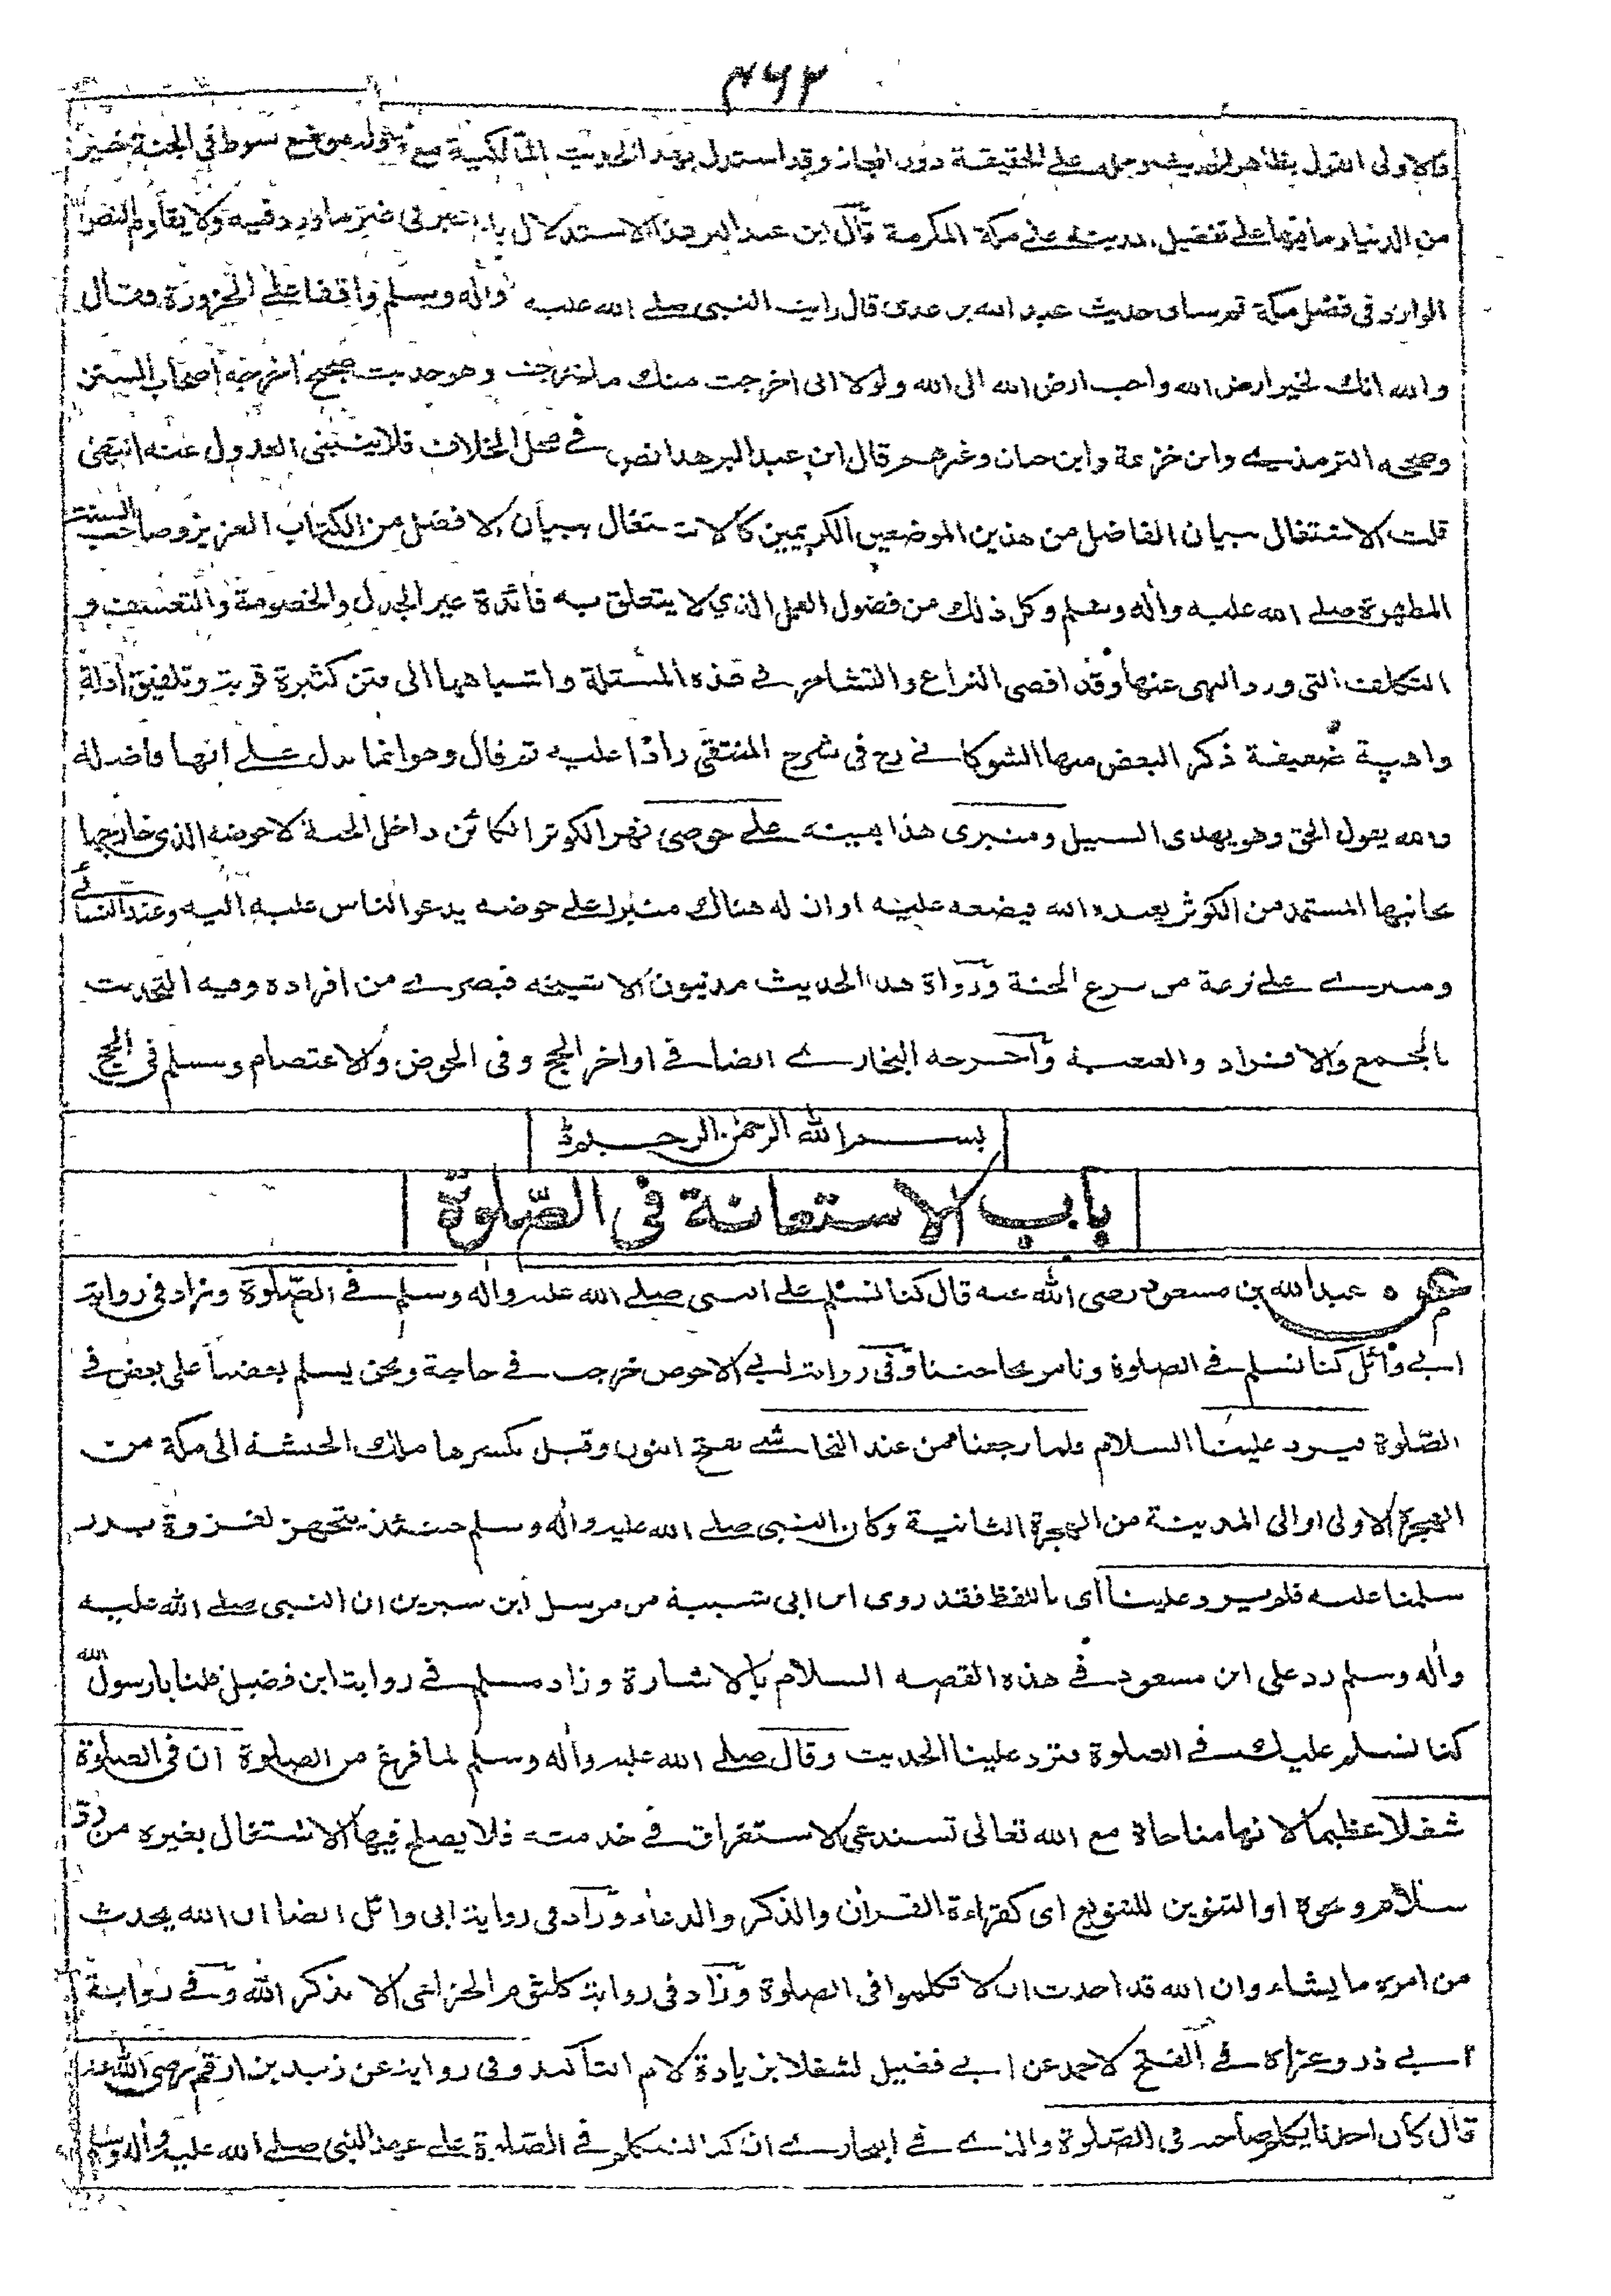 ٤٦٢
فالاولى القول بظاهر الحديث وحمله على الحقيقة دون المجاز وقد استدل بهذا الحديث المالكية مع قوله موضع سوط فى الجنة خير
من الدنيا وما فيها على تفضيل المدينة على مكة المكرمة قال ابن عبد البر هذا الاستدلال بالخبر فى غير ما ورد فيه ولا يقاوم النص
الوارد فى فضل مكة ثم ساق حديث عبد الله بن عدى قال رايت النبى صلے الله عليه واٰله وسلم واقفا علے الحزورة وقال
والله انك لخير ارض الله واحب ارض الله الى الله ولولا انى اخرجت منك ما خرجت وهو حديث صحيح اخرجه اصحاب السنن
وصححه الترمذے وابن خزيمة وابن حبان وغيرهم قال ابن عبد البر هذا نص فے محل الخلاف فلا ينبغى العدول عنه انتهى
قلت الاشتغال ببيان الفاضل من هذين الموضعين الكريمين كالاشتغال ببيان الافضل من الكتاب العزيز وصاحب السنة
المطهرة صلے الله عليه واٰله وسلم وكل ذلك من فضول العمل الذي لا يتعلق به فائدة غير الجدل والخصومة والتعسف و
التكلف التى ورد النهى عنها وقد افضى النزاع والتشاجر فے هذه المسئلة واشباهها الى فتن كثيرة قوية وتلفيق ادلة
واهية ضعيفة ذكر البعض منها الشوكانے رح فى شرح المنتقى رادّا عليه ثم قال وهو انما يدل علے انها فاضلة
والله يقول الحق وهو يهدى السبيل ومنبرى هذا بعينه علے حوضى نهر الكوثر الكائن داخل الجنة لا حوضه الذى خارجها
بجانبها المستمد من الكوثر يعيده الله فيضعه عليه او ان له هناك منبرا علے حوضه يدعو الناس عليه اليه وعند النسائے
ومنبرے علے ترعة من ترع الجنة ورواة هذا الحديث مدنيون الا شيخه فبصرے من افراده وفيه التحديث
بالجمع والافراد والعنعنة واخرجه البخارے ايضا فے اواخر الحج وفى الحوض والاعتصام ومسلم فى الحج
بسم الله الرحمٰن الرحيم
باب الاستعانة فى الصّلوة
عبد الله بن مسعود رضى الله عنه قال كنا نسلم على النبى صلے الله عليه واٰله وسلم فے الصّلوة وزاد فى رواية
ابے وائل كنا نسلم فے الصلوة ونامر بحاجتنا وفى رواية ابے الاحوص خرجت فے حاجة ونحن يسلم بعضنا على بعض فے
الصّلوة فيرد علينا السلام فلما رجعنا من عند النجاشے بفتح النون وقيل بكسرها ملك الحبشة الى مكة من
الهجرة الاولى او الى المدينة من الهجرة الثانية وكان النبى صلے الله عليه واٰله وسلم حينئذ يتجهز لغزوة بدر
سلمنا عليه فلم يرد علينا اى باللفظ فقد روى ابن ابى شيبة من مرسل ابن سيرين ان النبى صلے الله عليه
واٰله وسلم رد على ابن مسعود فے هذه القصه السلام بالاشارة وزاد مسلم فے رواية ابن فضيل قلنا يا رسول الله
كنا نسلم عليك فے الصلوة فترد علينا الحديث وقال صلے الله عليه واٰله وسلم لما فرغ من الصلوة ان فى الصلوة
شغلا عظيما لانها مناجاة مع الله تعالى تستدعى الاستغراق فے خدمته فلا يصلح فيها الاشتغال بغيره من ردّ
سلام ونحوه او التنوين للتنويع اى كقراءة القراٰن والذكر والدعاء وزاد فى رواية ابى وائل ايضا ان الله يحدث
من امره ما يشاء وان الله قد احدث ان لا تكلموا فى الصلوة وزاد فى رواية كلثوم الخزاعى الا بذكر الله وفے رواية
ابے ذر وعزاه فے الفتح لاحمد عن ابے فضيل لشغلا بزيادة لام التأكيد وفى رواية عن زيد بن ارقم رضى الله عنه
قال كان احدنا يكلم صاحبه فى الصّلوة والذے فے البخارے ان كنا لنتكلم فے الصّلوة علے عهد النبى صلے الله عليه واٰله وسلم